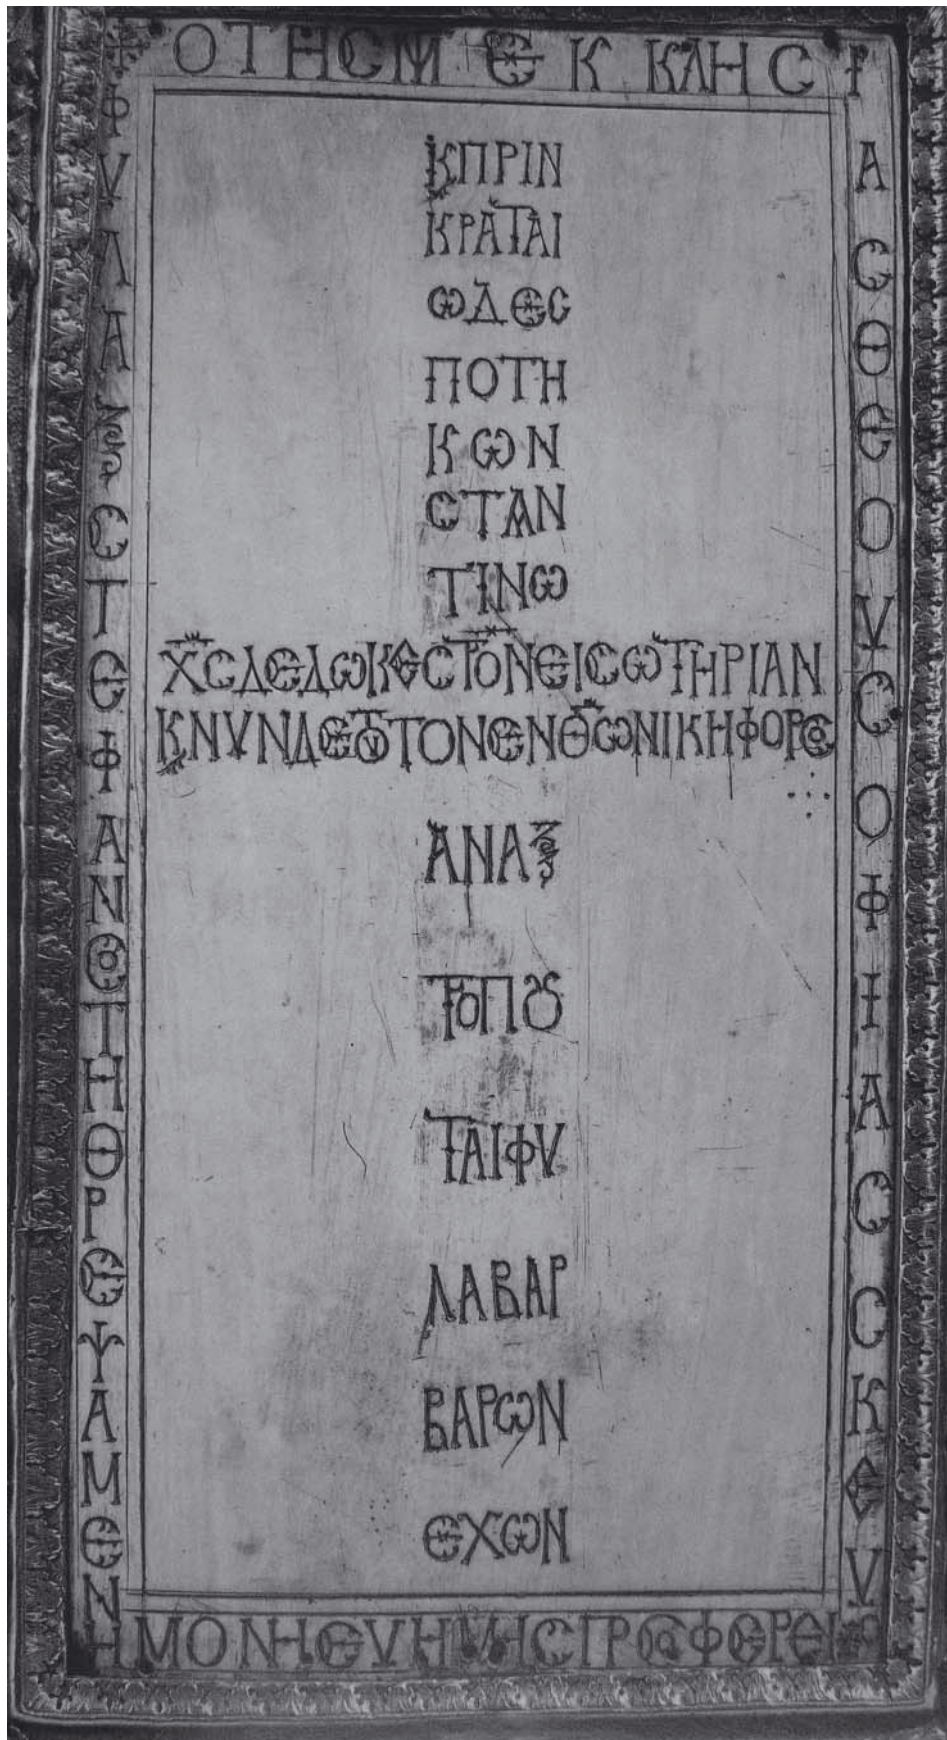 +ΟΤΗCΜΕΚΚΛΗCΙ
ΑCΘΕΟVCΟΦΙΑCCΚΕV
ΦVΛΑΞCΤΕΦΑΝΟCΤΗΘΡΕΨΑΜΕΝ
ΗΜΟΝΗΕVΗΜΗCΠΡΟCΦΕΡΕΙ
ΚΠΡΙΝ
ΚΡΑΤΑΙ
ΩΔΕC
ΠΟΤΗ
ΚΩΝ
CΤΑΝ
ΤΙΝΩ
ΧCΔΕΔΩΚΕCΤΡΟΝΕΙCCΩΤΗΡΙΑΝ
ΚΝVΝΔΕΤΟVΤΟΝΕΝΘΩΝΙΚΗΦΟΡΟC
ΑΝΑΞ
ΤΡΟΠȢ
ΤΑΙΦV
ΛΑΒΑΡ
ΒΑΡΩΝ
ΕΧΩΝ